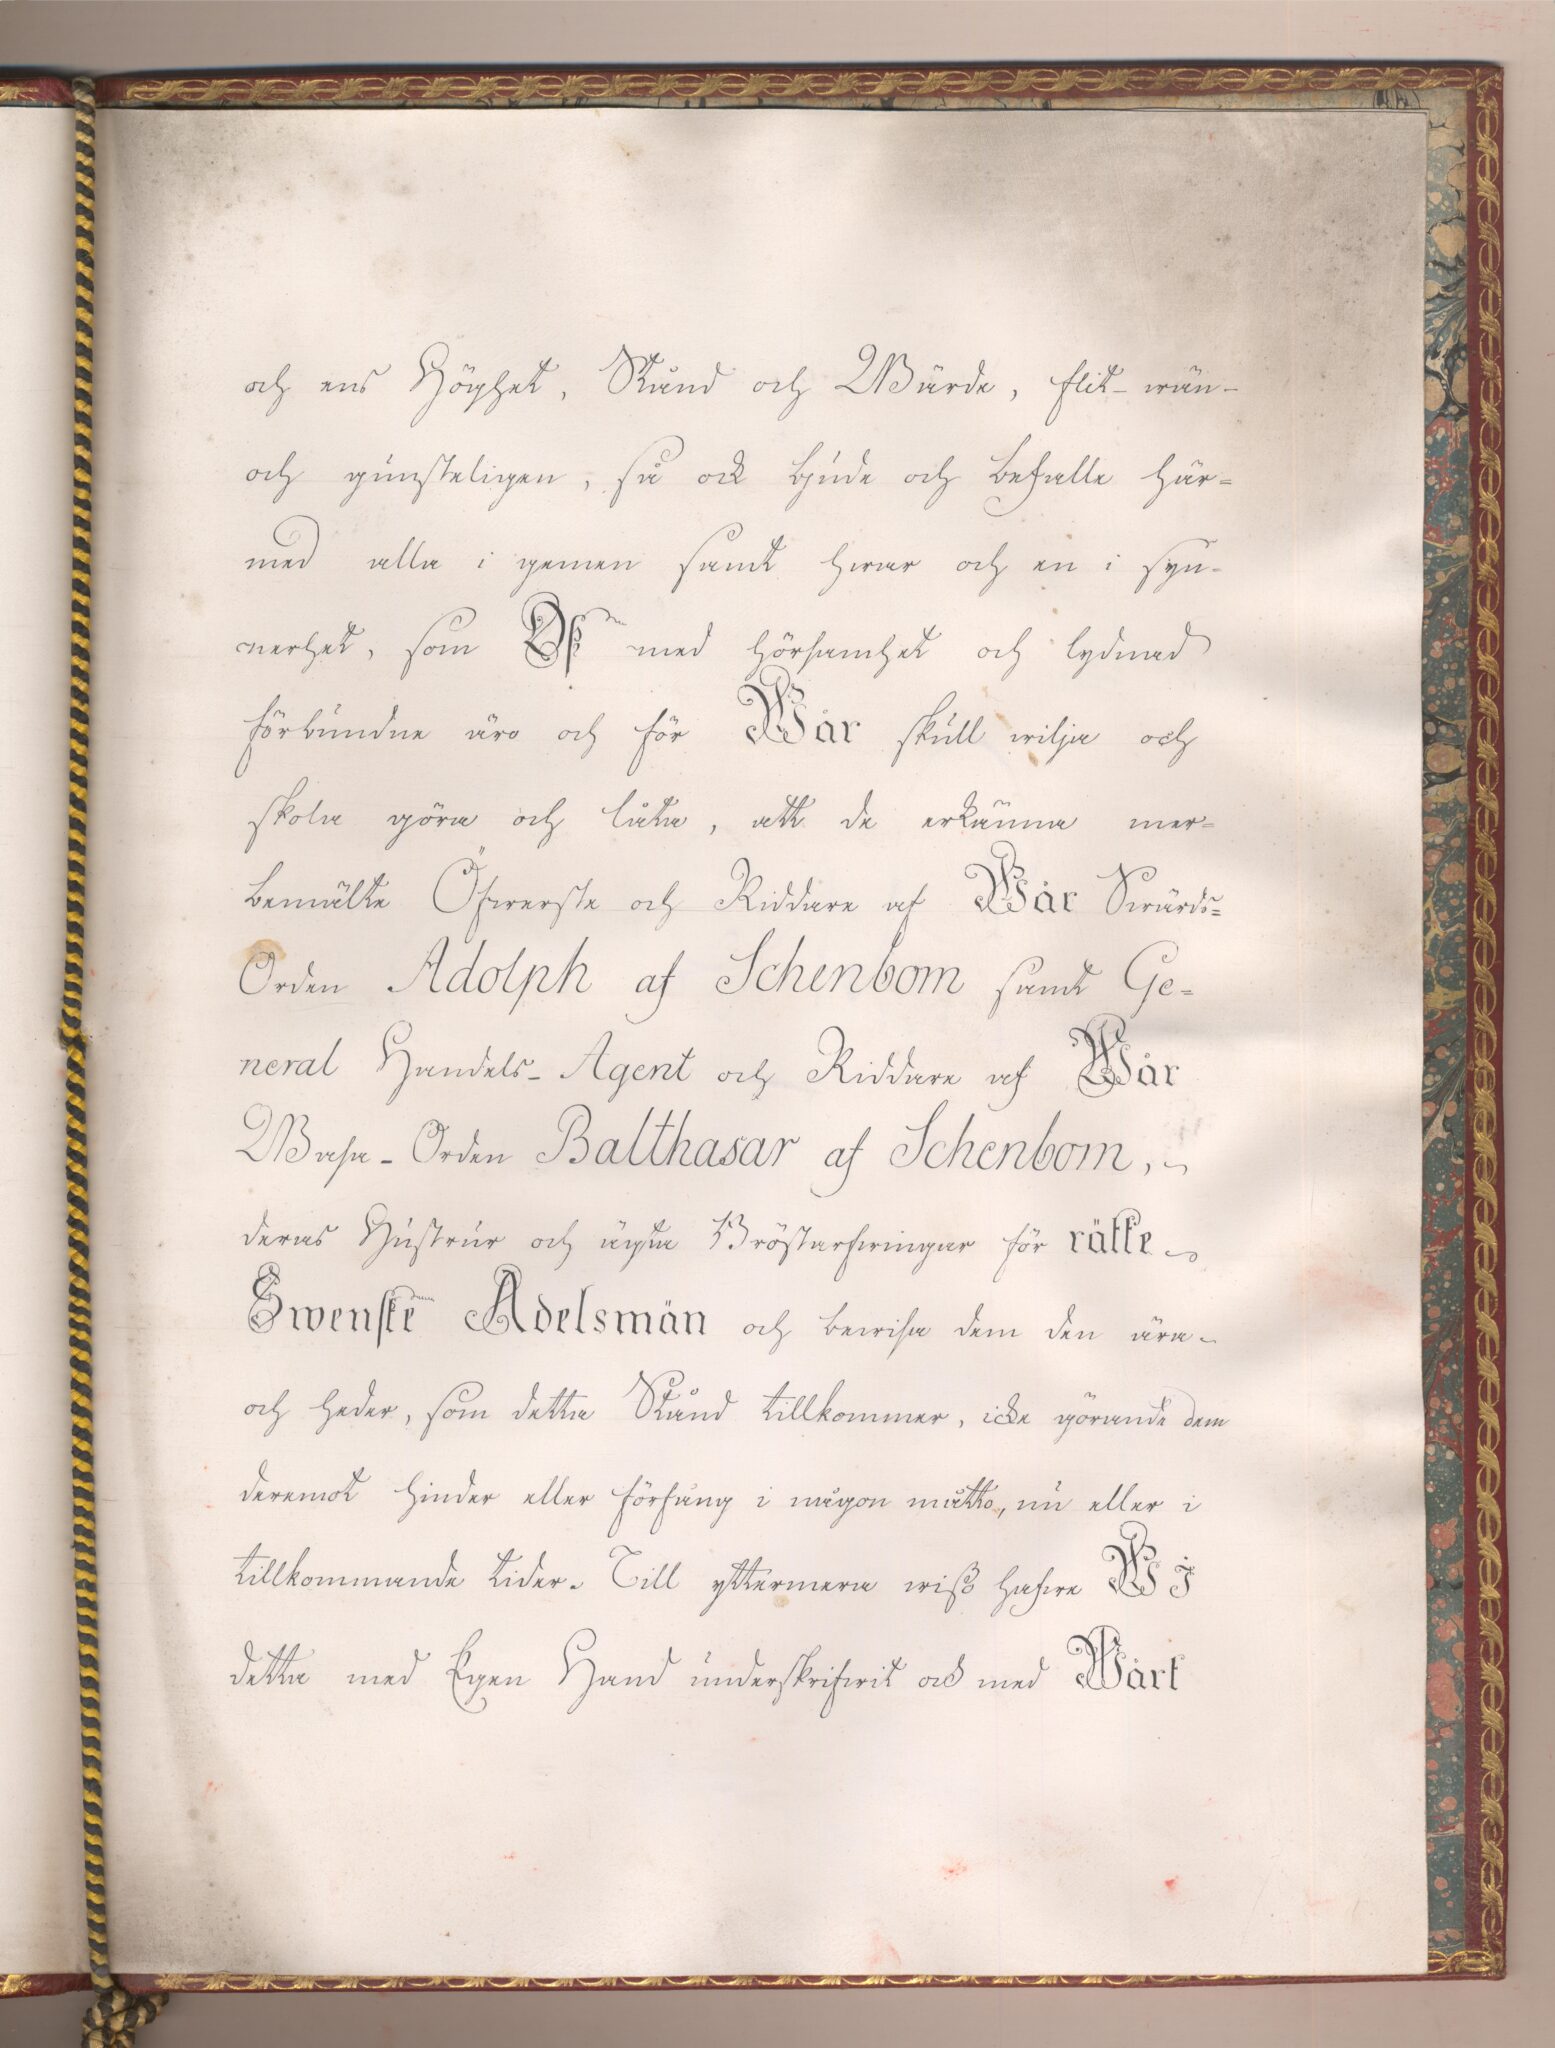 och ens Höghet, Stånd och Wärde, flit- wän-
och gunsteligen, så ock bjude och befalle här=
med alla i gemen samt hwar och en i syn-
nerhet, som Oß med hörsamhet och lydnad
förbundne äro och för Wår skull wilja och
skola göra och låta, att de erkänna mer=
bemälte Öfwerste och Riddare af Wår Swärds=
Orden Adolph af Schenbom samt Ge=
neral Handels-Agent och Riddare af Wår
Wasa-Orden Balthasar af Schenbom,
deras Hustrur och ägta Bröstarfwingar för rätte
Swenske Adelsmän och bewisa dem den ära
och heder, som detta Stånd tillkommer, icke görande dem
deremot hinder eller förfång i någon måtto, nu eller i
tillkommande tider. Till yttermera wiß hafwe Wi
detta med Egen Hand underskrifwit och med Wårt